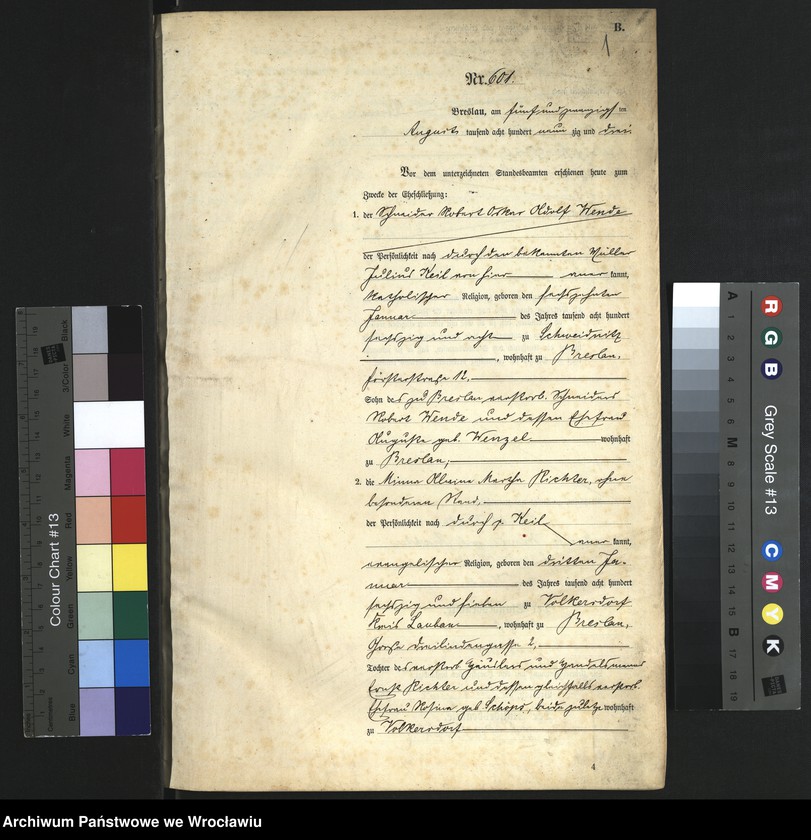 B.
1
Nr. 601.
Breslau, am fünfundzwanzigsten
August tausend acht hundert neunzig und drei
Vor dem unterzeichneten Standesbeamten erschienen heute zum
Zwecke der Eheschließung:
1. der Schneider Robert Oskar Adolf Wende
der Persönlichkeit nach durch den bekannten Müller
Julius Keil von hier anerkannt,
katholischer Religion, geboren den sechszehnten
Januar des Jahres tausend acht hundert
sechszig und acht zu Schweidnitz
, wohnhaft zu Breslau,
Försterstraße 12,
Sohn des zu Breslau verstorb. Schneiders
Robert Wende und dessen Ehefrau
Auguste geb. Wenzel wohnhaft
zu Breslau,
2. die Minna Alwine Martha Richter, ohne
besonderen Stand,
der Persönlichkeit nach durch p. Keil
anerkannt,
evangelischer Religion, geboren den dritten Ja-
nuar des Jahres tausend acht hundert
sechszig und sieben zu Volkersdorf
Kreis Lauban, wohnhaft zu Breslau,
Große Dreilindengasse 2,
Tochter des verstorb. Häuslers und Handelsmanns
Ernst Richter und dessen gleichfalls verstorb.
Ehefrau Rosina geb. Schöps, beide zuletzt wohnhaft
zu Volkersdorf
4
Colour Chart #13
Black
3/Color
White
Magenta
Red
Yellow
Green
Cyan
Blue
Grey Scale #13
R
G
B
C
M
Y
K
A 1 2 3 4 5 6 M 8 9 10 11 12 13 14 15 B 17 18 19
Archiwum Państwowe we Wrocławiu